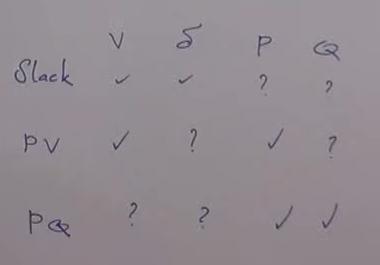 V δ P Q
Slack ✓ ✓ ? ?
PV ✓ ? ✓ ?
PQ ? ? ✓ ✓